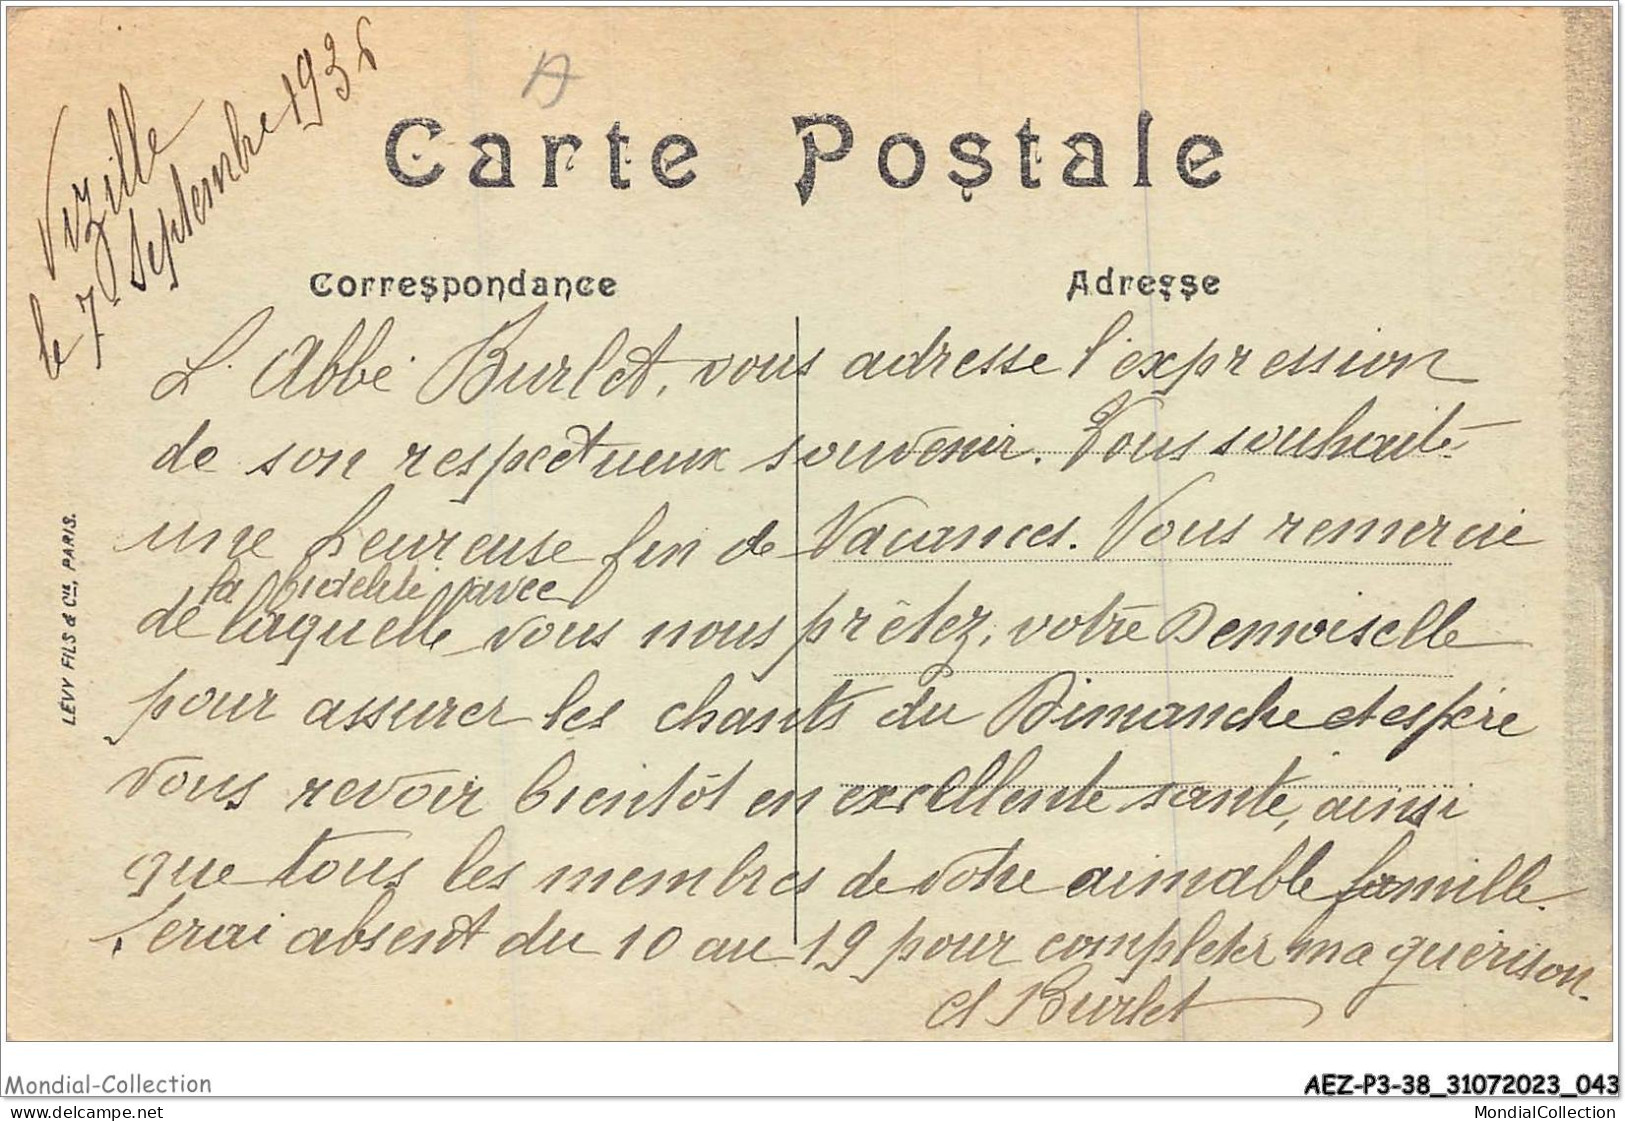 Vizille
le 7 Septembre 1936
A
Carte Postale
Correspondance
Adresse
L'Abbé Burlet, vous adresse l'expression
de son respectueux souvenir. Vous souhaite
une heureuse fin de Vacances. Vous remercie
la fidélité avec
de laquelle vous nous prêtez, votre Demoiselle
pour assurer les chants du Dimanche et espère
vous revoir bientôt en excellente santé, ainsi
que tous les membres de votre aimable famille.
Serai absent du 10 au 19 pour completer ma guérison.
Burlet
LEVY FILS & Cie, PARIS.
Mondial-Collection
AEZ-P3-38_31072023_043
https://www.delcampe.net
MondialCollection